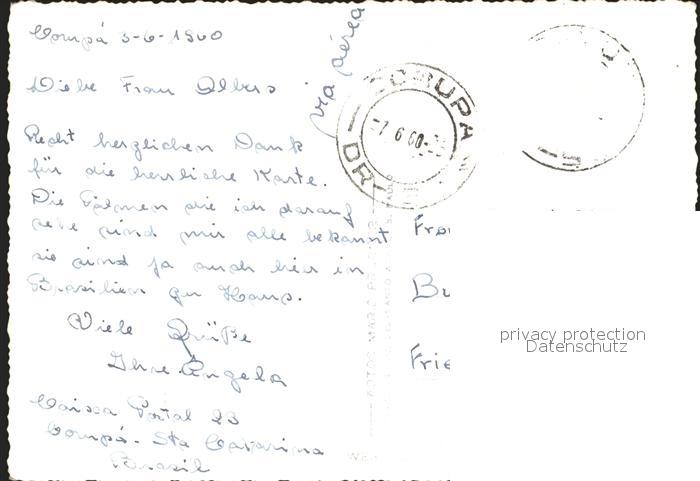 Corupá 3-6-1960
via aérea
Liebe Frau Albers
Recht herzlichen Dank
für die herrliche Karte.
Die Palmen die ich darauf
sehe sind mir alle bekannt
sie sind ja auch hier in
Brasilien zu Haus.
Viele Grüße
Ihre Angela
Caixa Postal 23
Corupá - Sta Catarina
Brasil
CORUPA
-7.6.60
DR
Frau
Bu
Frie
privacy protection
Datenschutz